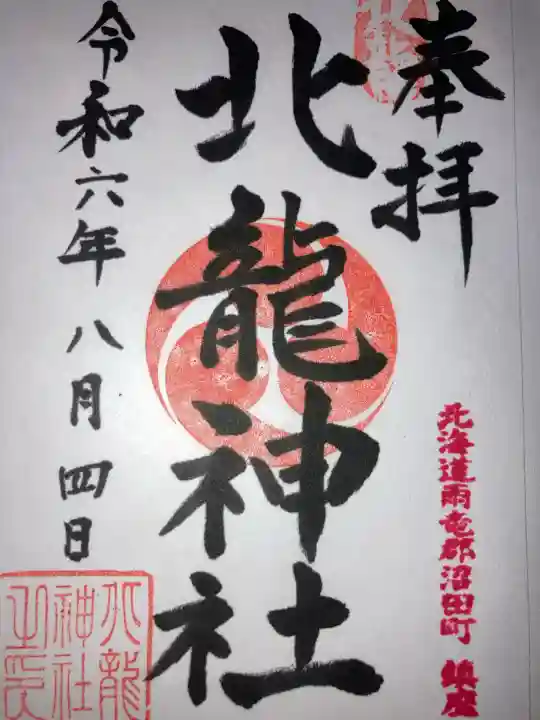 奉拝
北海道雨竜郡沼田町 鎮座
北龍神社
令和六年 八月 四日
北龍
神社
之印